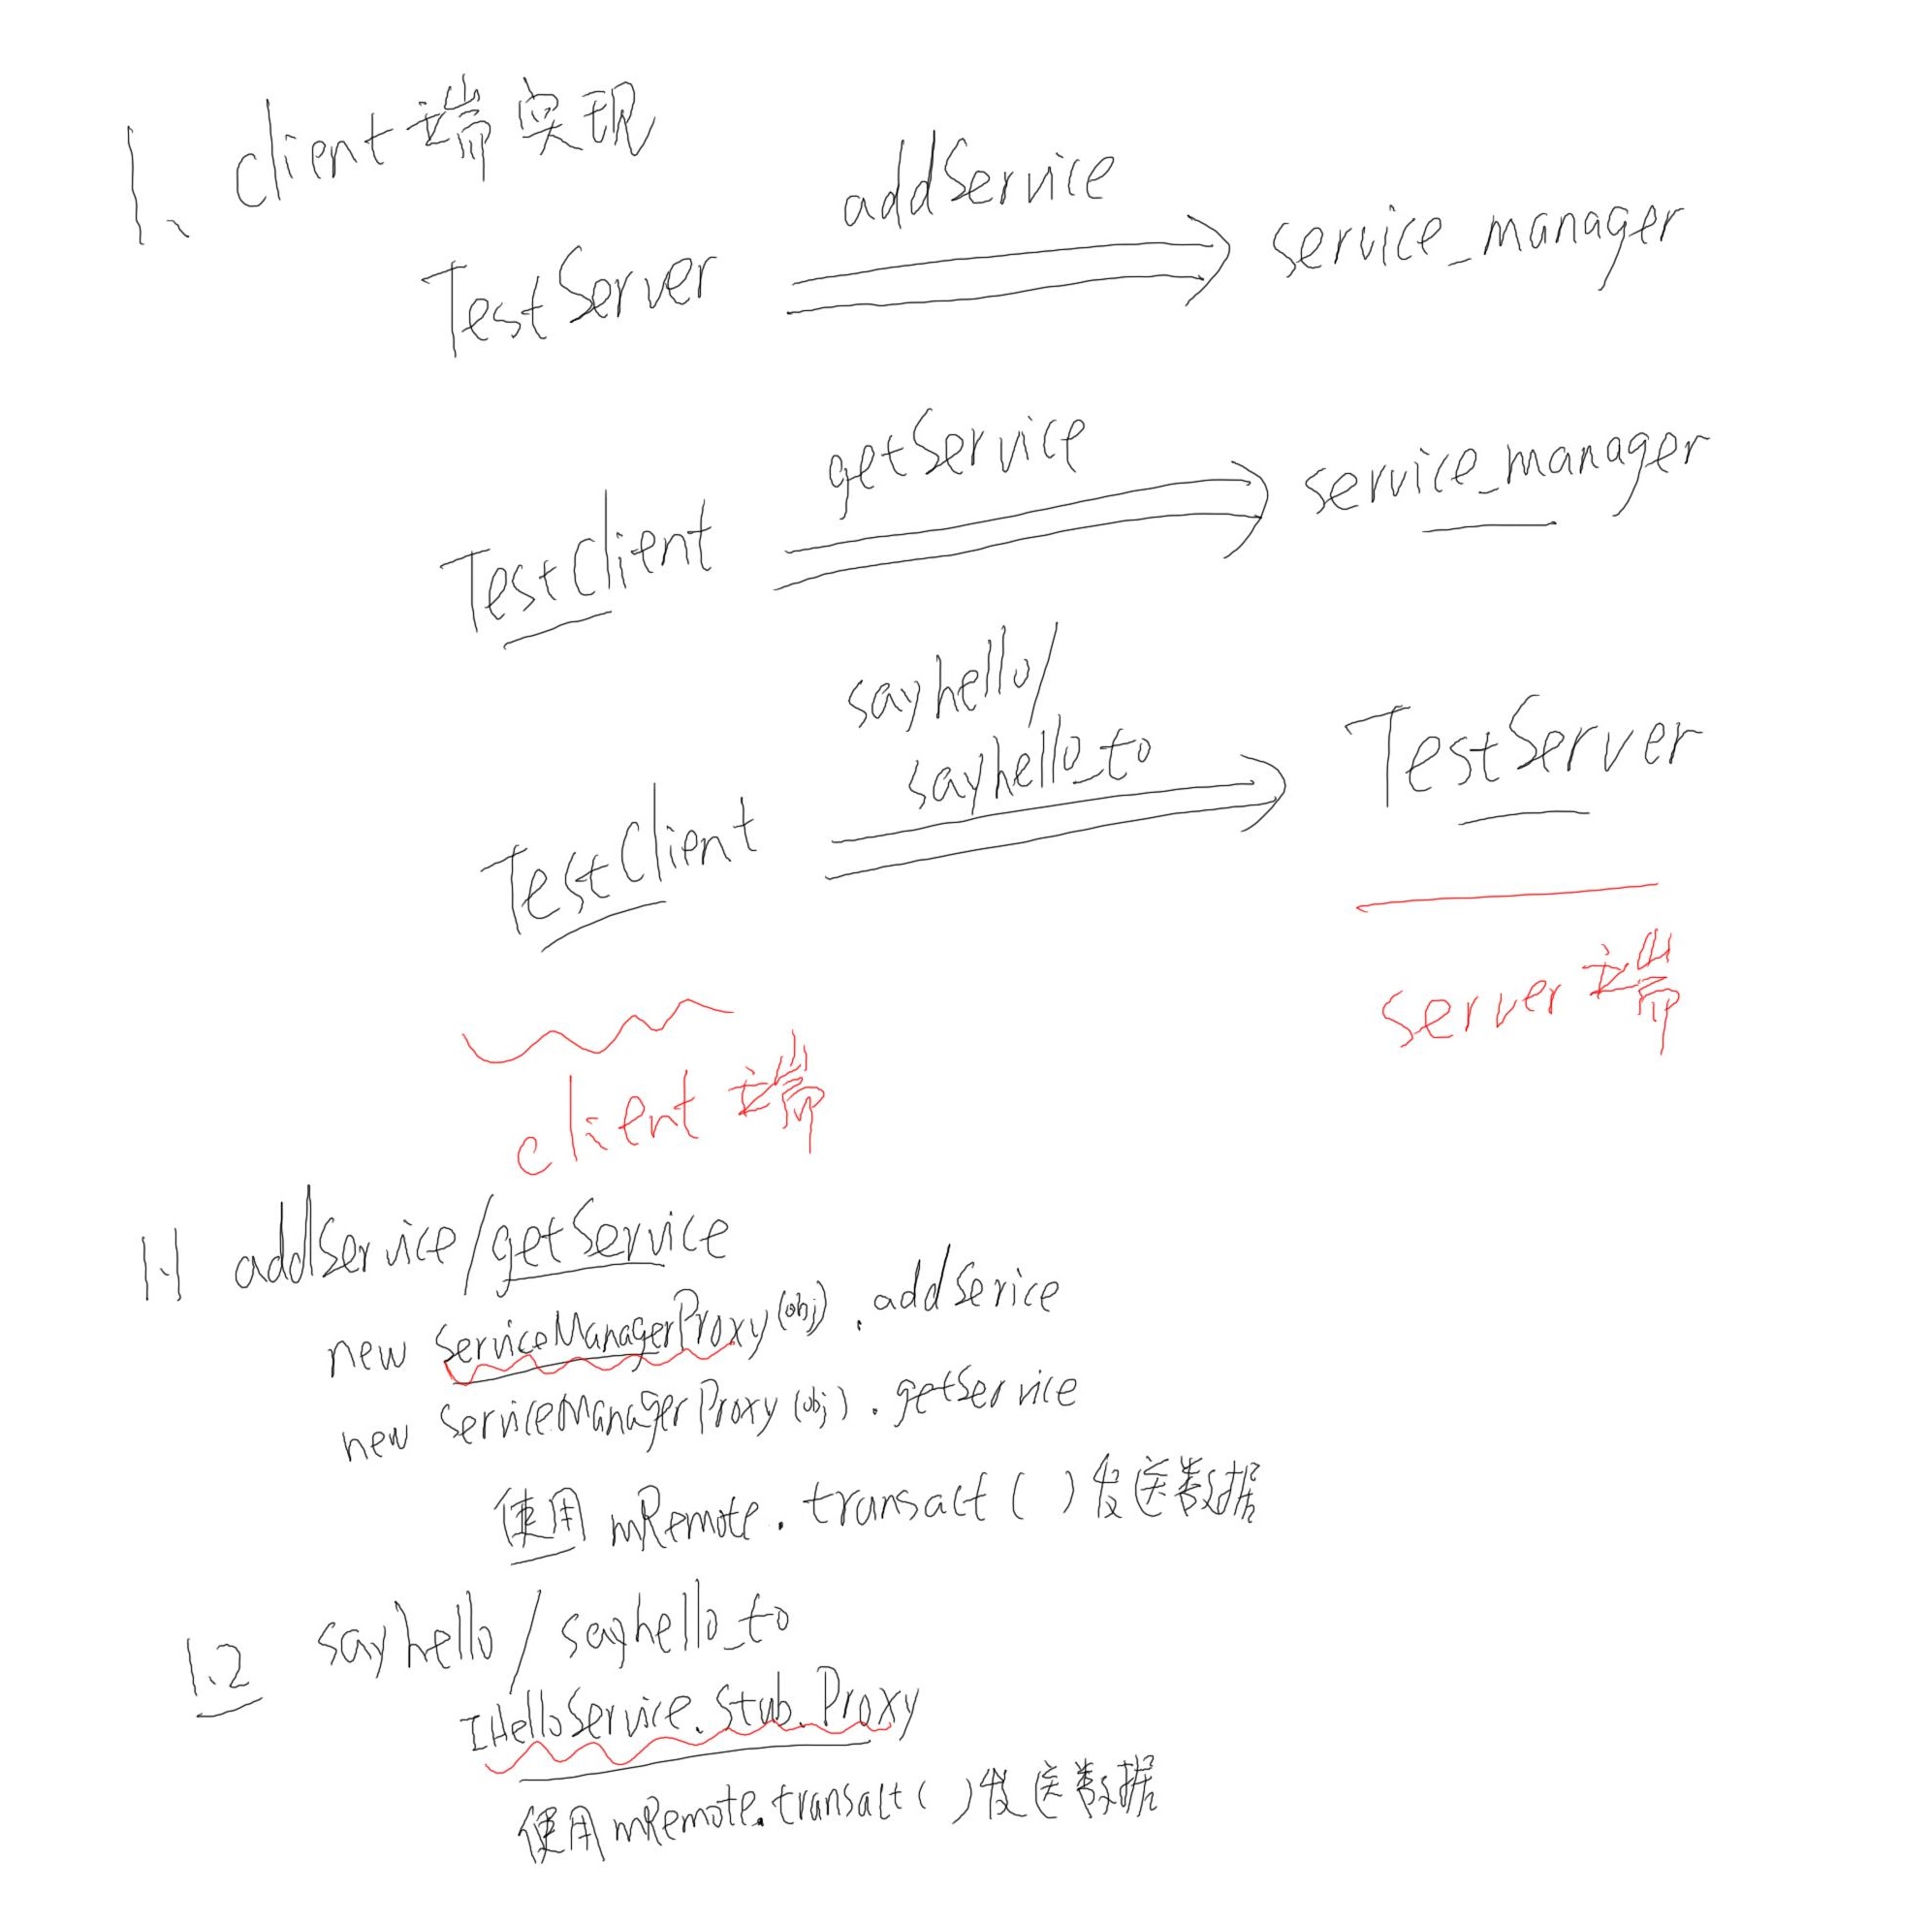 1、client端实现
addService
TestServer service_manager
getService
TestClient service_manager
sayhello/
sayhello_to
TestClient TestServer
server端
client端
1.1 addService/getService
new ServiceManagerProxy(obj).addSerice
new ServiceManagerProxy(obj).getService
使用 mRemote.transact( )发送数据
1.2 sayhello/sayhello_to
IHelloService.Stub.Proxy
使用mRemote.transact( )发送数据